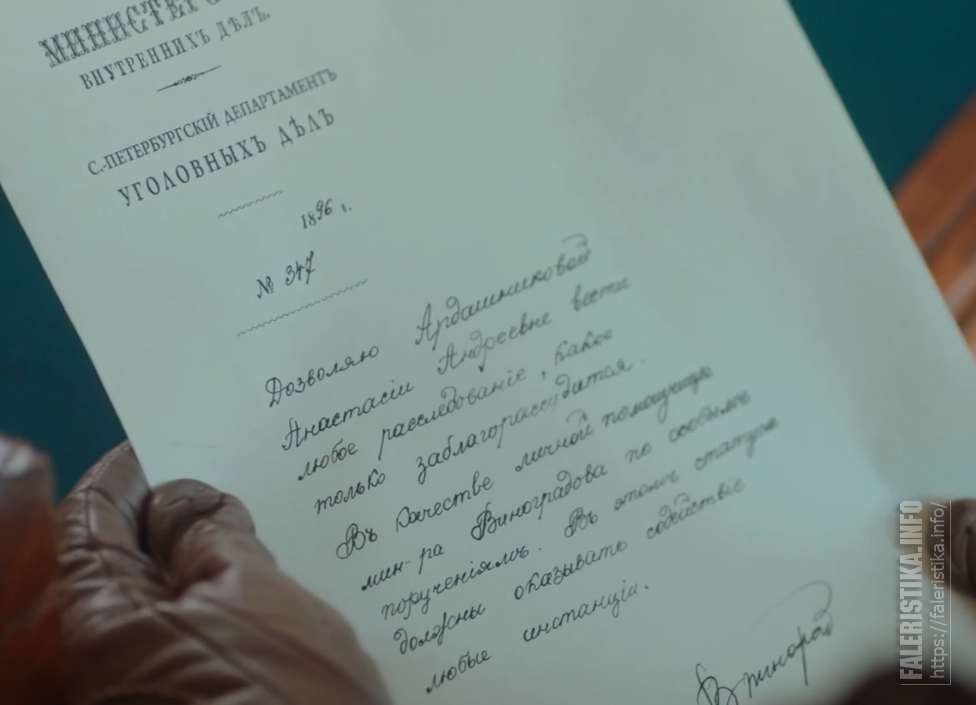 МИНИСТЕР
ВНУТРЕННИХЪ ДѢЛЪ.
С.-ПЕТЕРБУРГСКІЙ ДЕПАРТАМЕНТЪ
УГОЛОВНЫХЪ ДѢЛЪ
1896 г.
№ 347
Дозволяю Ардашниковой
Анастасіи Андреевне вести
любое расследованіе, какое
только заблагорассудится.
Въ качестве личной помощницы
мин-ра Виноградова по особымъ
порученіямъ. Въ этомъ статусе
должны оказывать содействіе
любые инстанціи.
Виноград
FALERISTIKA.INFO
https://faleristika.info/